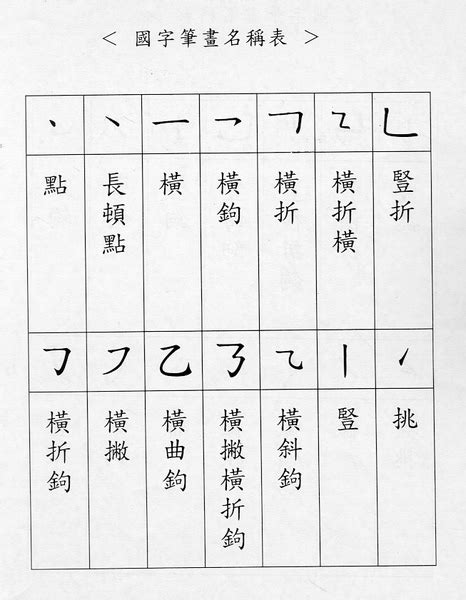 < 國字筆畫名稱表 >
丶 ㇔ 一 乛 ㇕ ㇍ 𠃊
點
長頓點
橫
橫鉤
橫折
橫折橫
豎折
𠃌 ㇇ 乙 ㇌ ⺄ 丨 ㇀
橫折鉤
橫撇
橫曲鉤
橫撇橫折鉤
橫斜鉤
豎
挑